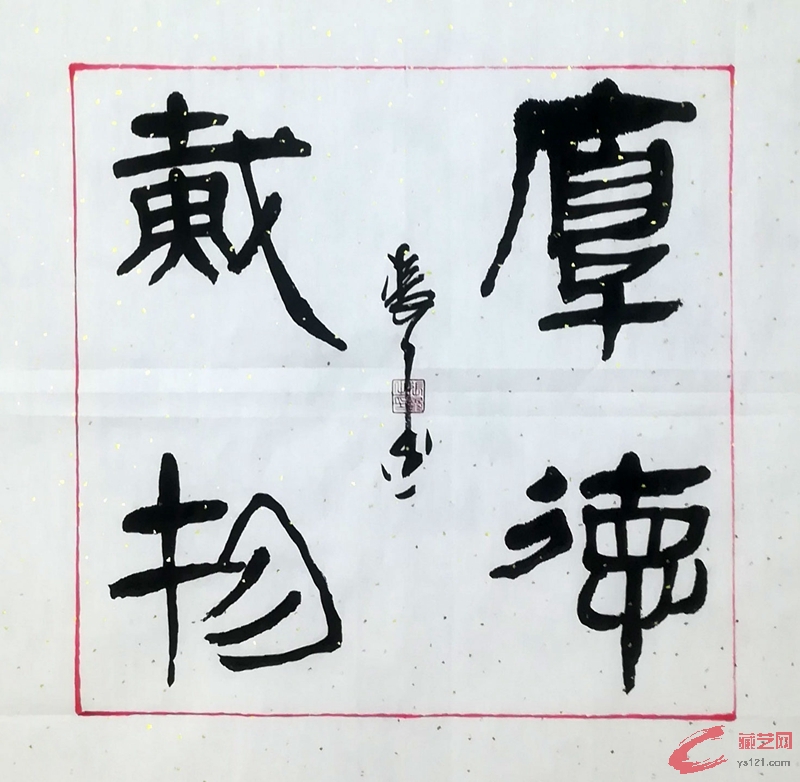 厚德
載物
藏艺网
ys121.com